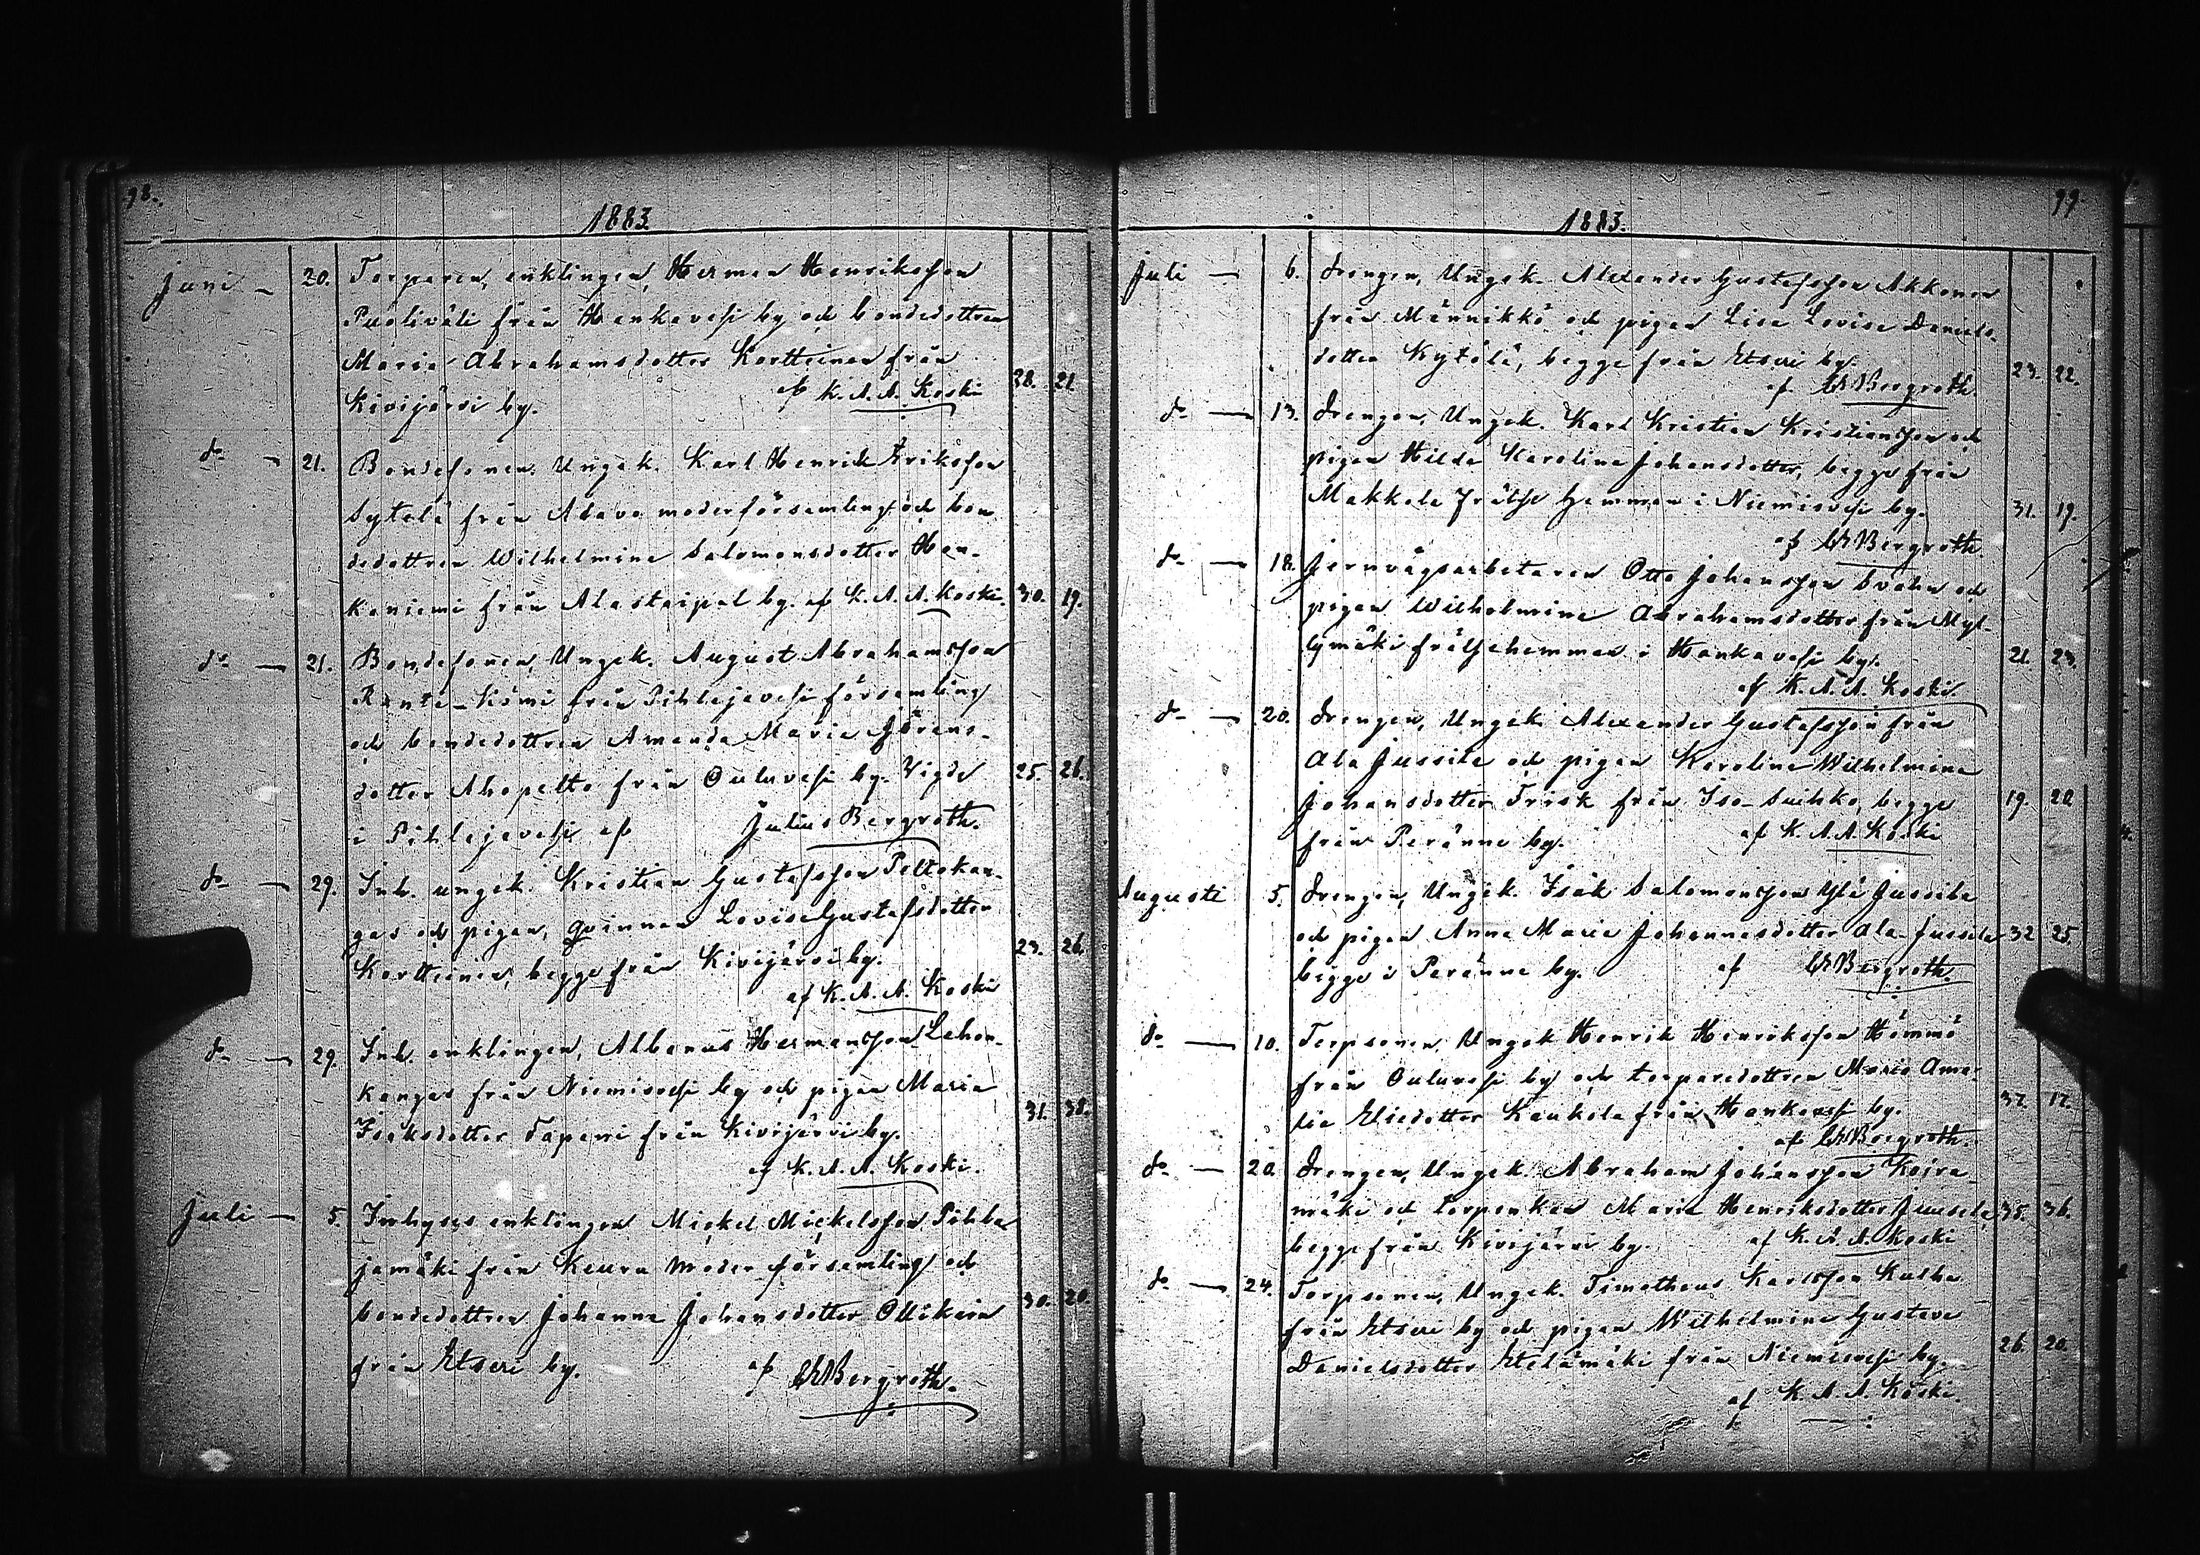 98.
1883
Juni — 20. Torparen, enklingen, Herman Henriksson
Puoliväli från Hankavesi by och bondedottren
Maria Abrahamsdotter Kortteinen från
Kivijärvi by. af K. A. A. Koski 28. 21.
do — 21. Bondesonen, Ungek. Karl Henrik Eriksson
Sytelä från Alavo moderförsamling och bon-
dedottren Wilhelmina Salomonsdotter Han-
kaniemi från Alastaipal by. af K. A. A. Koski. 30. 19.
do — 21. Bondesonen, Ungek. August Abrahamsson
Ranta-Kömi från Pihlajavesi församling
och bondedottren Amanda Maria Görans-
dotter Ahopelto från Ouluvesi by. Vigde 25. 26.
i Pihlajavesi af Julius Bergroth.
do — 29. Inh. ungek. Kristian Gustafsson Peltokan-
gas och pigan, qvinnan Lovisa Gustafsdotter
Kortteinen, begge från Kivijärvi by. 23. 26.
af K. A. A. Koski
do — 29. Inh. enklingen, Albanus Hermansson Lehon-
kangas från Niemisvesi by och pigan Maria
Isaksdotter Tapani från Kivijärvi by. 31. 38.
af K. A. A. Koski.
Juli — 5. Inhyses enklingen Mickel Mickelsson Pihla-
jamäki från Keuru Moder församling och
bondedottren Johanna Johansdotter Ollikain 30. 20.
från Etseri by. af Bergroth.
99
1883.
Juli — 6. Drengen, Ungek. Alexander Gustafsson Akkonen
från Männikkö och pigan Lisa Lovisa Daniels-
dotter Kytölä, begge från Etseri by. 23. 22.
af Bergroth.
do — 13. Drengen, Ungek. Karl Kristian Kristiansson och
pigan Hilda Karolina Johansdotter, begge från
Makkola Frälse hemman i Niemisvesi by. 31. 19.
af Bergroth
do — 18. Jernvägsarbetaren Otto Johansson Svahn och
pigan Wilhelmina Abrahamsdotter från Myl-
lymäki frälsehemman i Hankavesi by. 21. 23.
af K. A. A. Koski
do — 20. Drengen, Ungek. Alexander Gustafsson från
Ala Jussila och pigan Karolina Wilhelmina
Johansdotter Frisk från Iso-Suihko, begge 19. 20.
från Peränne by. af K. A. A. Koski
Augusti 5. Drengen, Ungek. Isak Salomonsson Yli Jussila
och pigan Anna Maria Johannesdotter Ala-Jussila 32 25.
begge i Peränne by. af Bergroth.
do — 10. Torpsonen, Ungek Henrik Henriksson Hömmö
från Ouluvesi by och torparedottren Maria Ama-
lia Eliedotter Kaukola från Hankavesi by. 37. 17.
af Bergroth.
do — 20. Drengen, Ungek. Abraham Johansson Koira-
mäki och Torpenkan Maria Henriksdotter Jussila, 35. 36.
begge från Kivijärvi by. af K. A. A. Koski
do — 24. Torpsonen, Ungek. Timotheus Karlsson Kulha
från Etseri by och pigan Wilhelmina Gustava
Danielsdotter Etelämäki från Niemisvesi by. 26. 20.
af K. A. A. Koski.